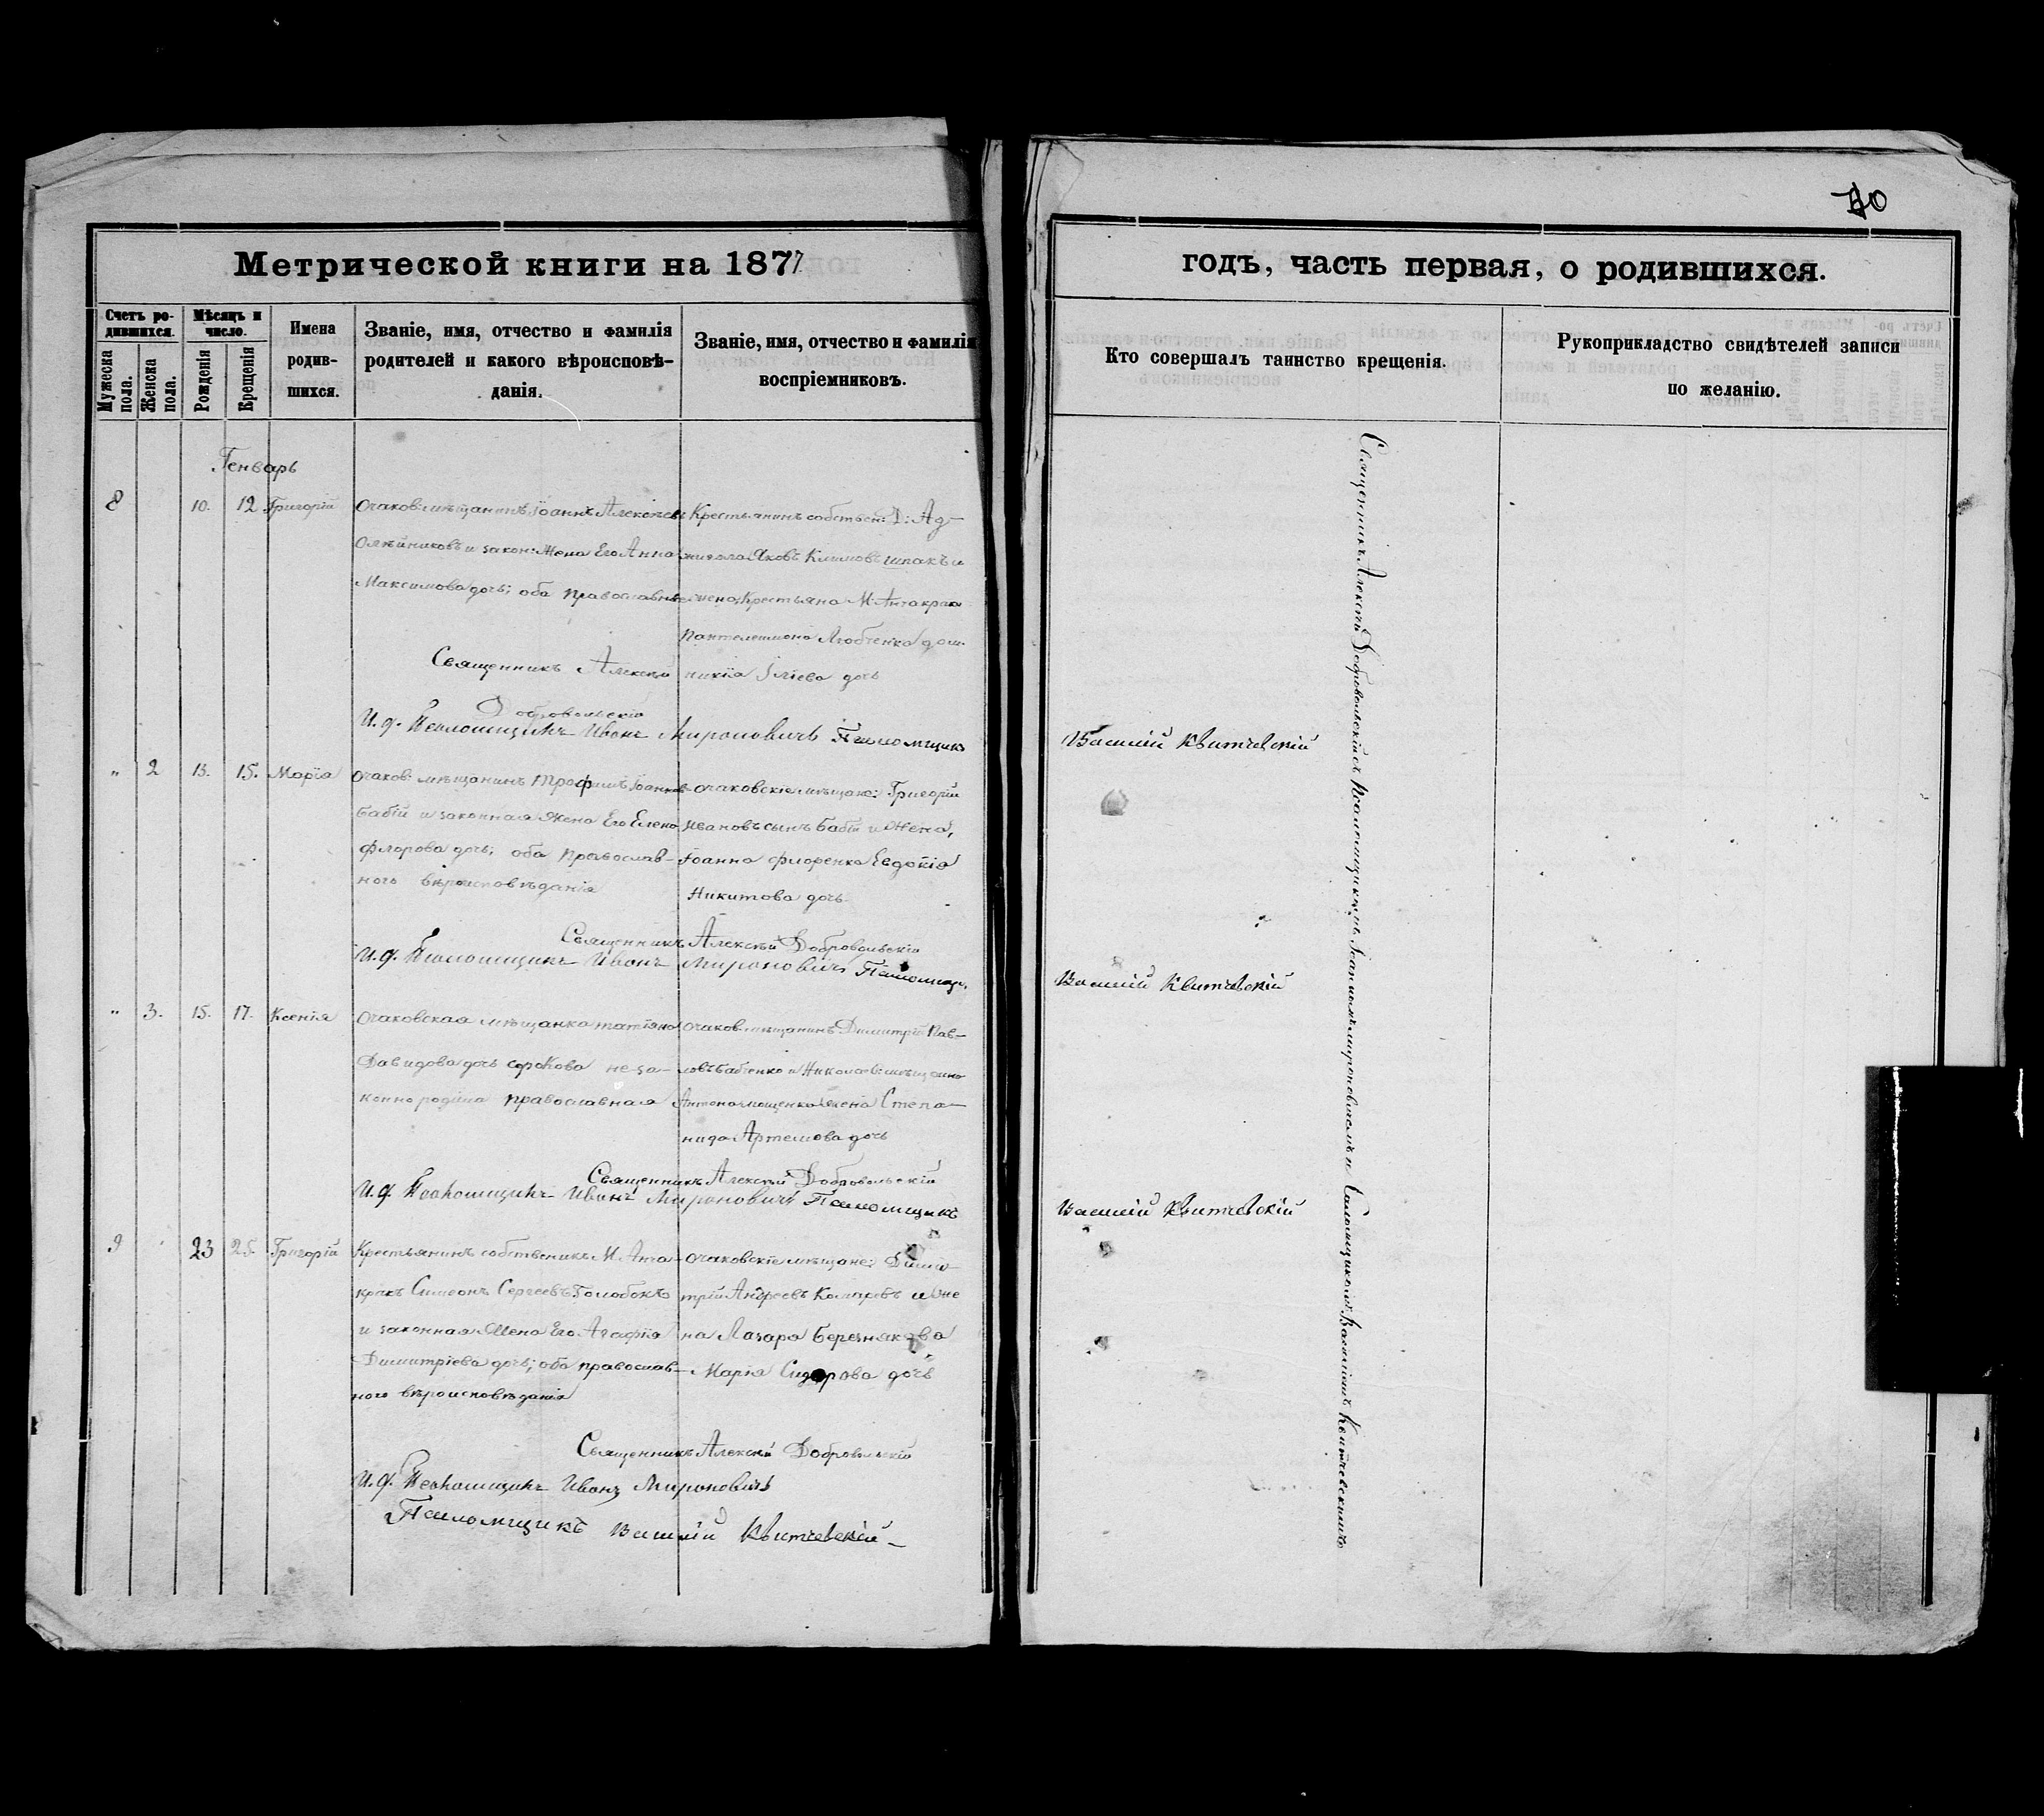 70
Метрической книги на 1877
годъ, часть первая, о родившихся.
Счетъ ро-
дившихся.
Мужеска
пола.
Женска
пола.
Мѣсяцъ и
число.
Рожденія
Крещенія
Имена
родив-
шихся.
Званіе, имя, отчество и фамилія
родителей и какого вѣроисповѣ-
данія.
Званіе, имя, отчество и фамилія
воспріемниковъ.
Кто совершалъ таинство крещенія.
Рукоприкладство свидѣтелей записи
по желанію.
Генварь
8 10. 12 Григорій
Очаков: мѣщанинъ Іоаннъ Алексѣевъ
Олѣйниковъ и закон: жена Его Анна
Максимова дочь; оба православные
Крестьянинъ собствен: Д: Ад-
жигола Яковъ Климовъ Шпакъ и
жена крестьяна М: Анчакрак
Пантелеимона
дочь
Священникъ Алексѣй
Добровольскій
И. д. Псаломщикъ Иванъ Мироновичъ Псаломщикъ
Василій Квитчевскій
" 2 13. 15. Марія
Очаков: мѣщанинъ Трофимъ Іоаннов-
Бабій и законная жена Его Елена
Флорова дочь; оба православ-
ного вѣроисповѣданія
Очаковскіе мѣщане: Григорій
Ивановъ сынъ Бабій и жена,
Іоанна Фиоренка Евдокія
Никитова дочь
Священникъ Алексѣй Добровольскій
И. д. Псаломщикъ Иванъ Мироновичъ Псаломщ.
Василій Квитчевскій
" 3. 15. 17. Ксенія
Очаковская мѣщанка Татіяна
Давидова дочь Сорокова не за-
конно родила православная
Очаков: мѣщанинъ Димитрій Пав-
ловъ Бабченко и
жена Степа-
нида Артемова дочь
Священникъ Алексѣй Добровольскій
И. д. Псаломщикъ Иванъ Мироновичъ Псаломщикъ
Василій Квитчевскій
9 23 25. Григорій
Крестьянинъ собственикъ М. Анча-
кракъ Симеонъ Сергеевъ Голобокъ
и законная жена Его Агафія
Димитріева дочь; оба православ-
ного вѣроисповѣданія
Очаковскіе мѣщане: Дими-
трій Андреевъ Комаревъ и же
на Лазара Березнякова
Марія Сидорова дочь
Священникъ Алексѣй Добровольскій
И. д. Псаломщикъ Иванъ Мироновичъ
Псаломщикъ Василій Квитчевскій
Священникъ Алексѣй Добровольскій съ Псаломщикомъ Іоанномъ Мироновичемъ и Псаломщикомъ Василіемъ Квитчевскимъ